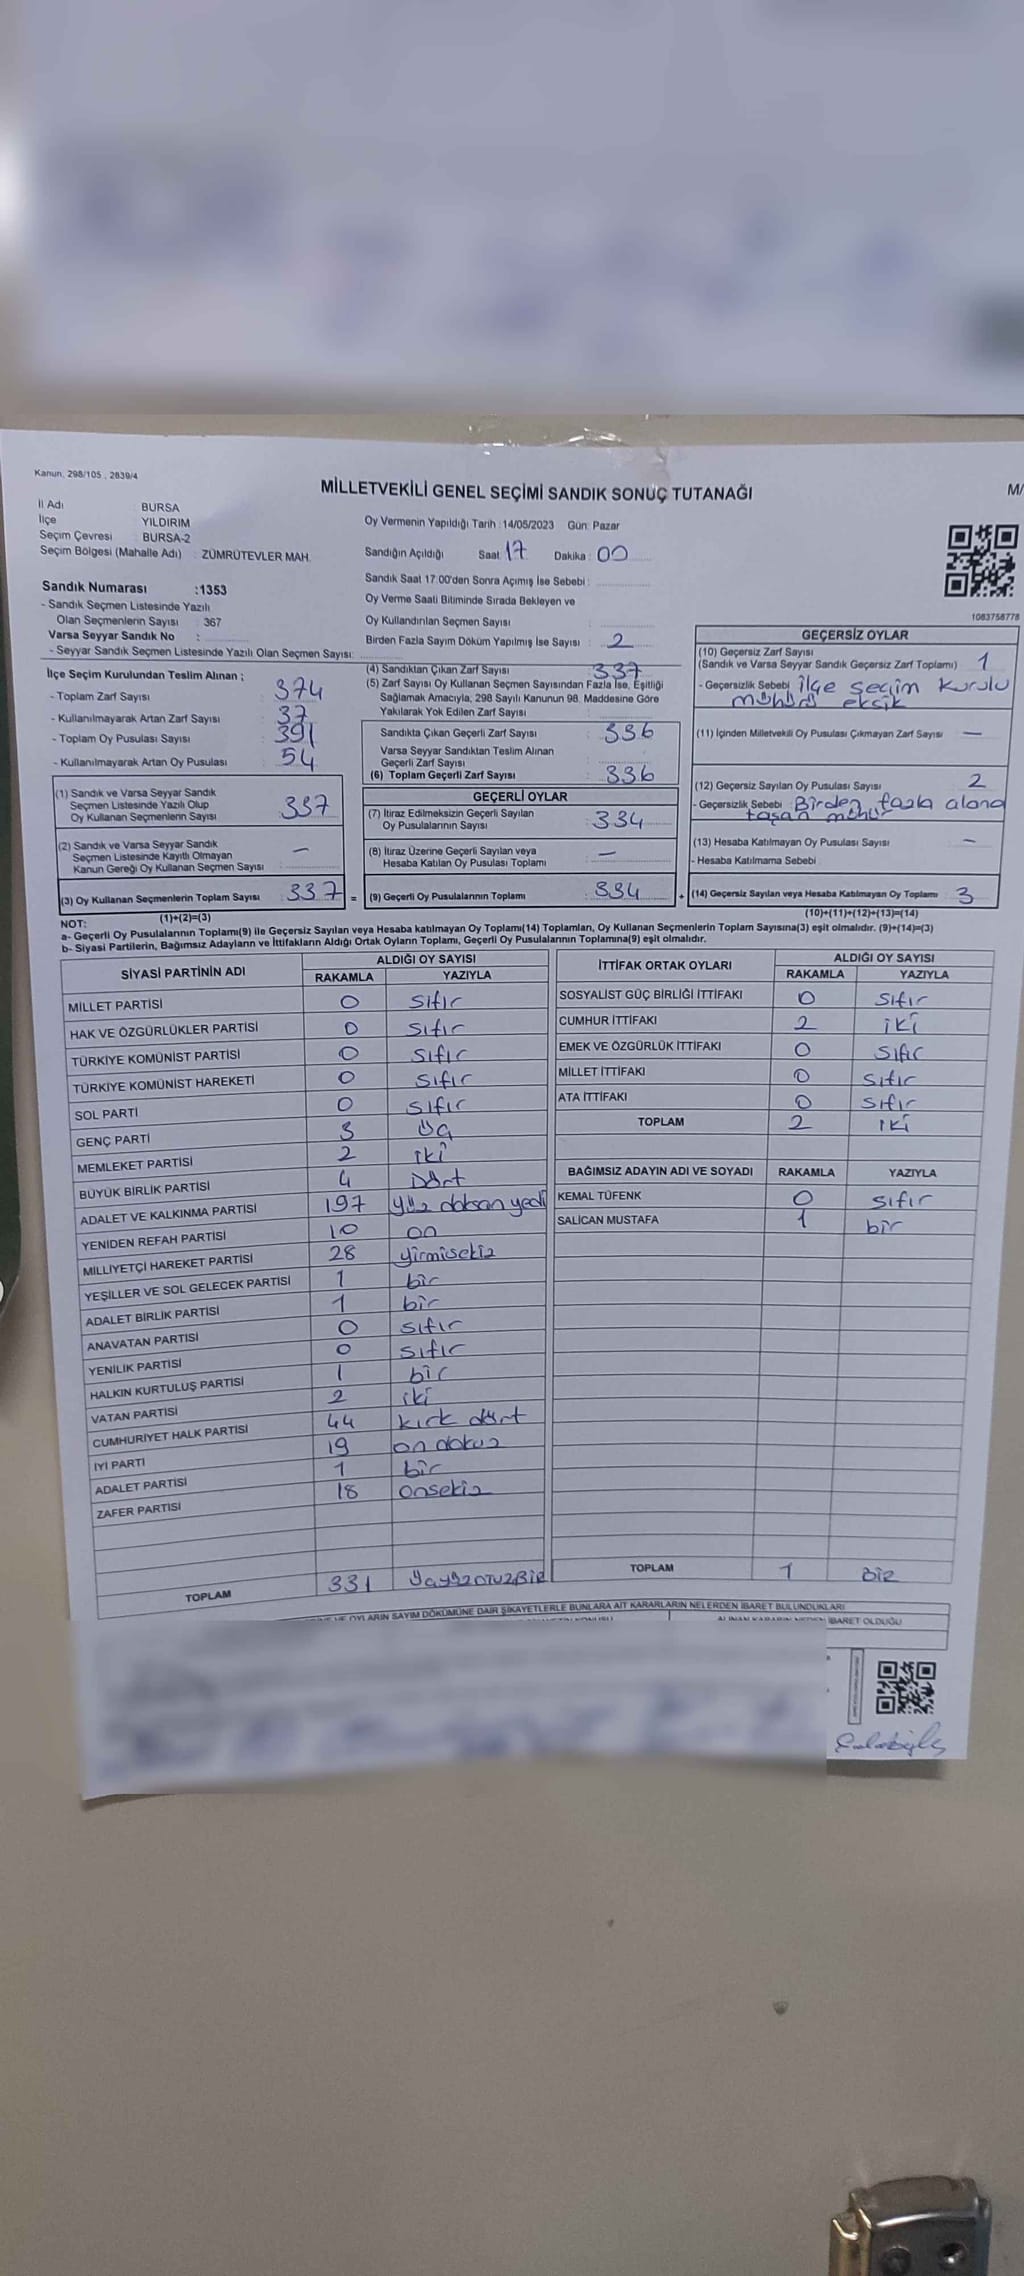 Kanun, 298/105 , 2839/4
MİLLETVEKİLİ GENEL SEÇİMİ SANDIK SONUÇ TUTANAĞI
M/
İl Adı BURSA
İlçe YILDIRIM
Seçim Çevresi BURSA-2
Seçim Bölgesi (Mahalle Adı) : ZÜMRÜTEVLER MAH.
Oy Vermenin Yapıldığı Tarih : 14/05/2023 Gün: Pazar
Sandığın Açıldığı Saat: 17 Dakika : 00
Sandık Saat 17:00'den Sonra Açımış İse Sebebi :
Oy Verme Saati Bitiminde Sırada Bekleyen ve
Oy Kullandırılan Seçmen Sayısı :
Birden Fazla Sayım Döküm Yapılmış İse Sayısı : 2
1083758778
Sandık Numarası :1353
- Sandık Seçmen Listesinde Yazılı
Olan Seçmenlerin Sayısı : 367
Varsa Seyyar Sandık No :
- Seyyar Sandık Seçmen Listesinde Yazılı Olan Seçmen Sayısı:
İlçe Seçim Kurulundan Teslim Alınan ;
- Toplam Zarf Sayısı : 374
- Kullanılmayarak Artan Zarf Sayısı : 37
- Toplam Oy Pusulası Sayısı : 391
- Kullanılmayarak Artan Oy Pusulası : 54
(1) Sandık ve Varsa Seyyar Sandık
Seçmen Listesinde Yazılı Olup
Oy Kullanan Seçmenlerin Sayısı : 337
(2) Sandık ve Varsa Seyyar Sandık
Seçmen Listesinde Kayıtlı Olmayan
Kanun Gereği Oy Kullanan Seçmen Sayısı : —
(3) Oy Kullanan Seçmenlerin Toplam Sayısı : 337 =
(1)+(2)=(3)
(4) Sandıktan Çıkan Zarf Sayısı : 337
(5) Zarf Sayısı Oy Kullanan Seçmen Sayısından Fazla İse, Eşitliği
Sağlamak Amacıyla, 298 Sayılı Kanunun 98. Maddesine Göre
Yakılarak Yok Edilen Zarf Sayısı :
Sandıkta Çıkan Geçerli Zarf Sayısı : 336
Varsa Seyyar Sandıktan Teslim Alınan
Geçerli Zarf Sayısı :
(6) Toplam Geçerli Zarf Sayısı : 336
GEÇERLİ OYLAR
(7) İtiraz Edilmeksizin Geçerli Sayılan
Oy Pusulalarının Sayısı : 334
(8) İtiraz Üzerine Geçerli Sayılan veya
Hesaba Katılan Oy Pusulası Toplamı : —
(9) Geçerli Oy Pusulalarının Toplamı : 334 +
GEÇERSİZ OYLAR
(10) Geçersiz Zarf Sayısı
(Sandık ve Varsa Seyyar Sandık Geçersiz Zarf Toplamı) : 1
- Geçersizlik Sebebi : ilçe seçim kurulu
mührü eksik
(11) İçinden Milletvekili Oy Pusulası Çıkmayan Zarf Sayısı : —
(12) Geçersiz Sayılan Oy Pusulası Sayısı : 2
- Geçersizlik Sebebi : Birden fazla alana
taşan mühür
(13) Hesaba Katılmayan Oy Pusulası Sayısı : —
- Hesaba Katılmama Sebebi :
(14) Geçersiz Sayılan veya Hesaba Katılmayan Oy Toplamı : 3
(10)+(11)+(12)+(13)=(14)
NOT:
a- Geçerli Oy Pusulalarının Toplamı(9) ile Geçersiz Sayılan veya Hesaba katılmayan Oy Toplamı(14) Toplamları, Oy Kullanan Seçmenlerin Toplam Sayısına(3) eşit olmalıdır. (9)+(14)=(3)
b- Siyasi Partilerin, Bağımsız Adayların ve İttifakların Aldığı Ortak Oyların Toplamı, Geçerli Oy Pusulalarının Toplamına(9) eşit olmalıdır.
SİYASİ PARTİNİN ADI ALDIĞI OY SAYISI
RAKAMLA YAZIYLA
MİLLET PARTİSİ 0 sıfır
HAK VE ÖZGÜRLÜKLER PARTİSİ 0 sıfır
TÜRKİYE KOMÜNİST PARTİSİ 0 sıfır
TÜRKİYE KOMÜNİST HAREKETİ 0 sıfır
SOL PARTİ 0 sıfır
GENÇ PARTİ 3 üç
MEMLEKET PARTİSİ 2 iki
BÜYÜK BİRLİK PARTİSİ 4 Dört
ADALET VE KALKINMA PARTİSİ 197 yüz doksan yedi
YENİDEN REFAH PARTİSİ 10 on
MİLLİYETÇİ HAREKET PARTİSİ 28 yirmisekiz
YEŞİLLER VE SOL GELECEK PARTİSİ 1 bir
ADALET BİRLİK PARTİSİ 1 bir
ANAVATAN PARTİSİ 0 sıfır
YENİLİK PARTİSİ 0 sıfır
HALKIN KURTULUŞ PARTİSİ 1 bir
VATAN PARTİSİ 2 iki
CUMHURİYET HALK PARTİSİ 44 kırk dört
İYİ PARTİ 19 on dokuz
ADALET PARTİSİ 1 bir
ZAFER PARTİSİ 18 onsekiz
TOPLAM 331
İTTİFAK ORTAK OYLARI ALDIĞI OY SAYISI
RAKAMLA YAZIYLA
SOSYALİST GÜÇ BİRLİĞİ İTTİFAKI 0 sıfır
CUMHUR İTTİFAKI 2 iki
EMEK VE ÖZGÜRLÜK İTTİFAKI 0 sıfır
MİLLET İTTİFAKI 0 sıfır
ATA İTTİFAKI 0 sıfır
TOPLAM 2 iki
BAĞIMSIZ ADAYIN ADI VE SOYADI RAKAMLA YAZIYLA
KEMAL TÜFENK 0 sıfır
SALİCAN MUSTAFA 1 bir
TOPLAM 1 BİR
VE OYLARIN SAYIM DÖKÜMÜNE DAİR ŞİKAYETLERLE BUNLARA AİT KARARLARIN NELERDEN İBARET BULUNDUKLARI
ALINAN KARARIN NEDEN İBARET OLDUĞU